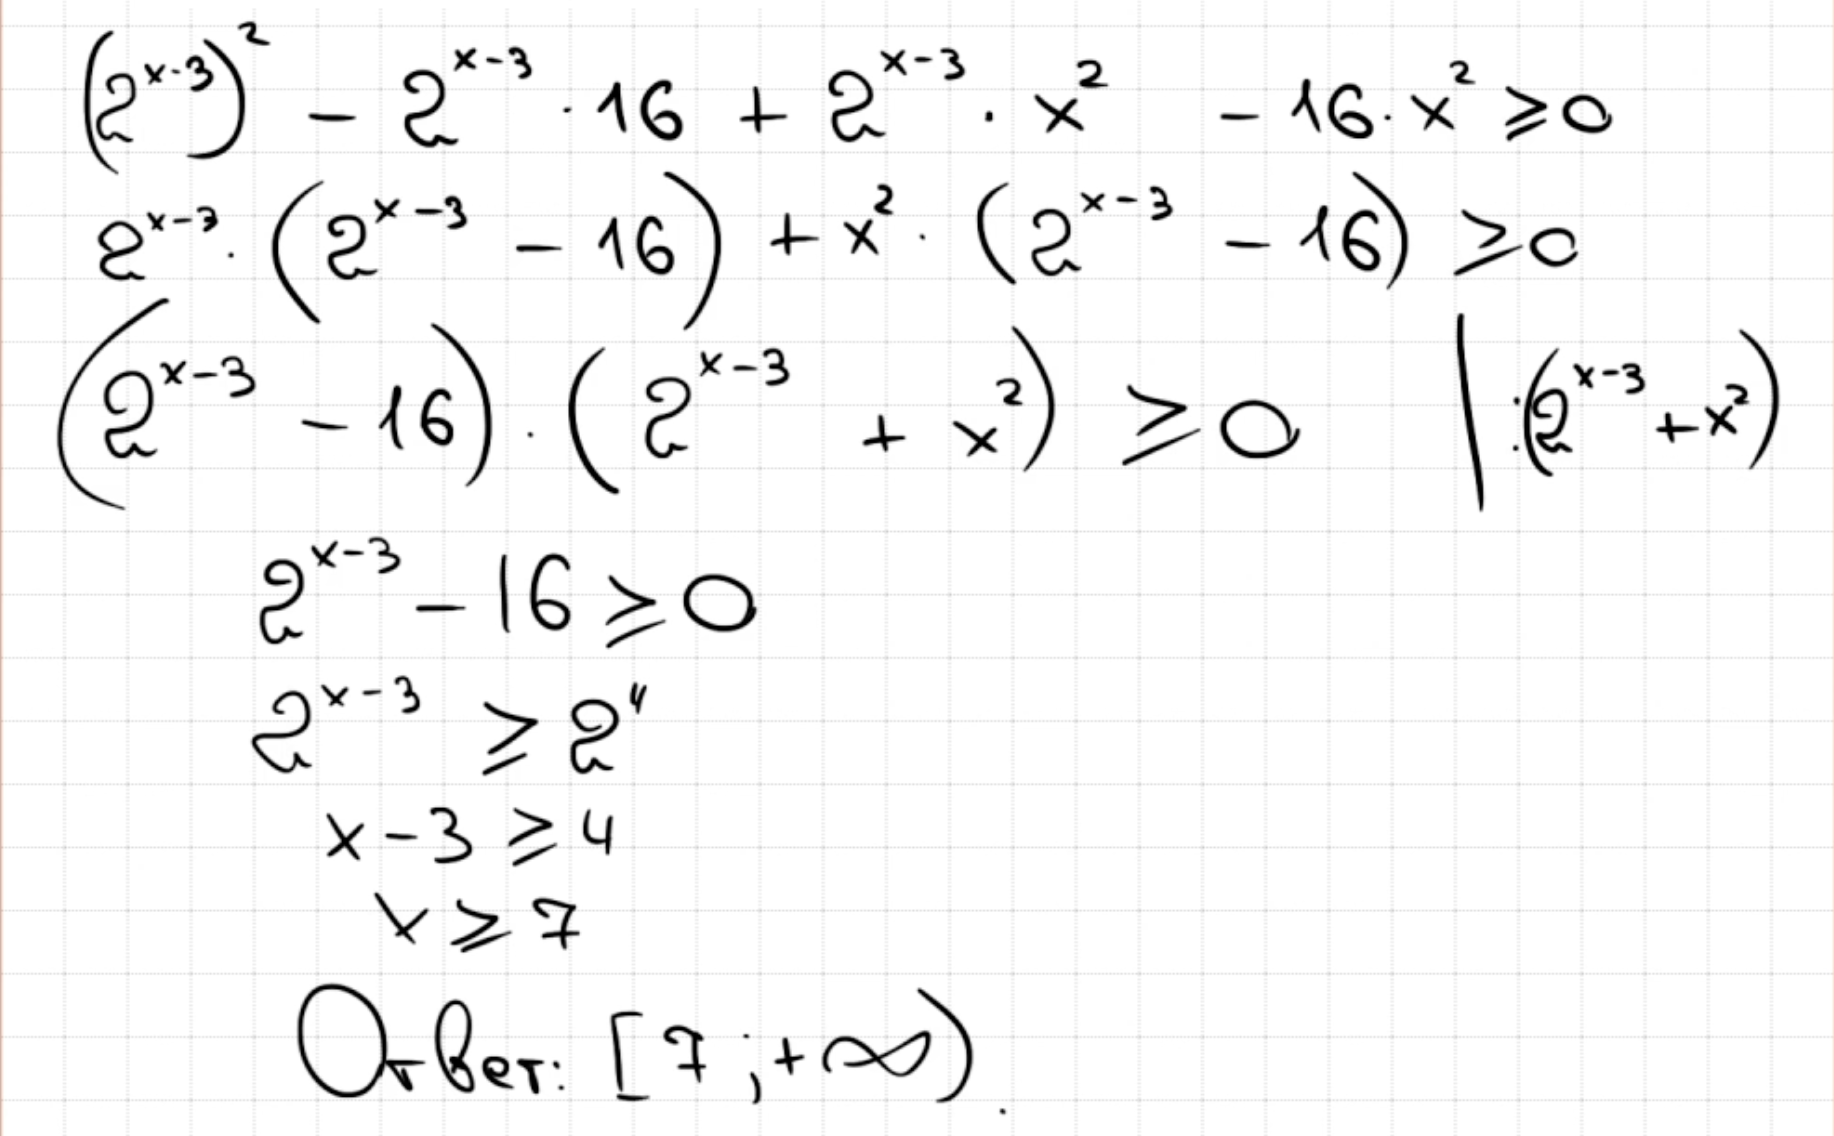 (2^{x-3})² - 2^{x-3} · 16 + 2^{x-3} · x² - 16 · x² ≥ 0
2^{x-3} · (2^{x-3} - 16) + x² · (2^{x-3} - 16) ≥ 0
(2^{x-3} - 16) · (2^{x-3} + x²) ≥ 0 | : (2^{x-3} + x²)
2^{x-3} - 16 ≥ 0
2^{x-3} ≥ 2⁴
x - 3 ≥ 4
x ≥ 7
Ответ: [7; +∞).